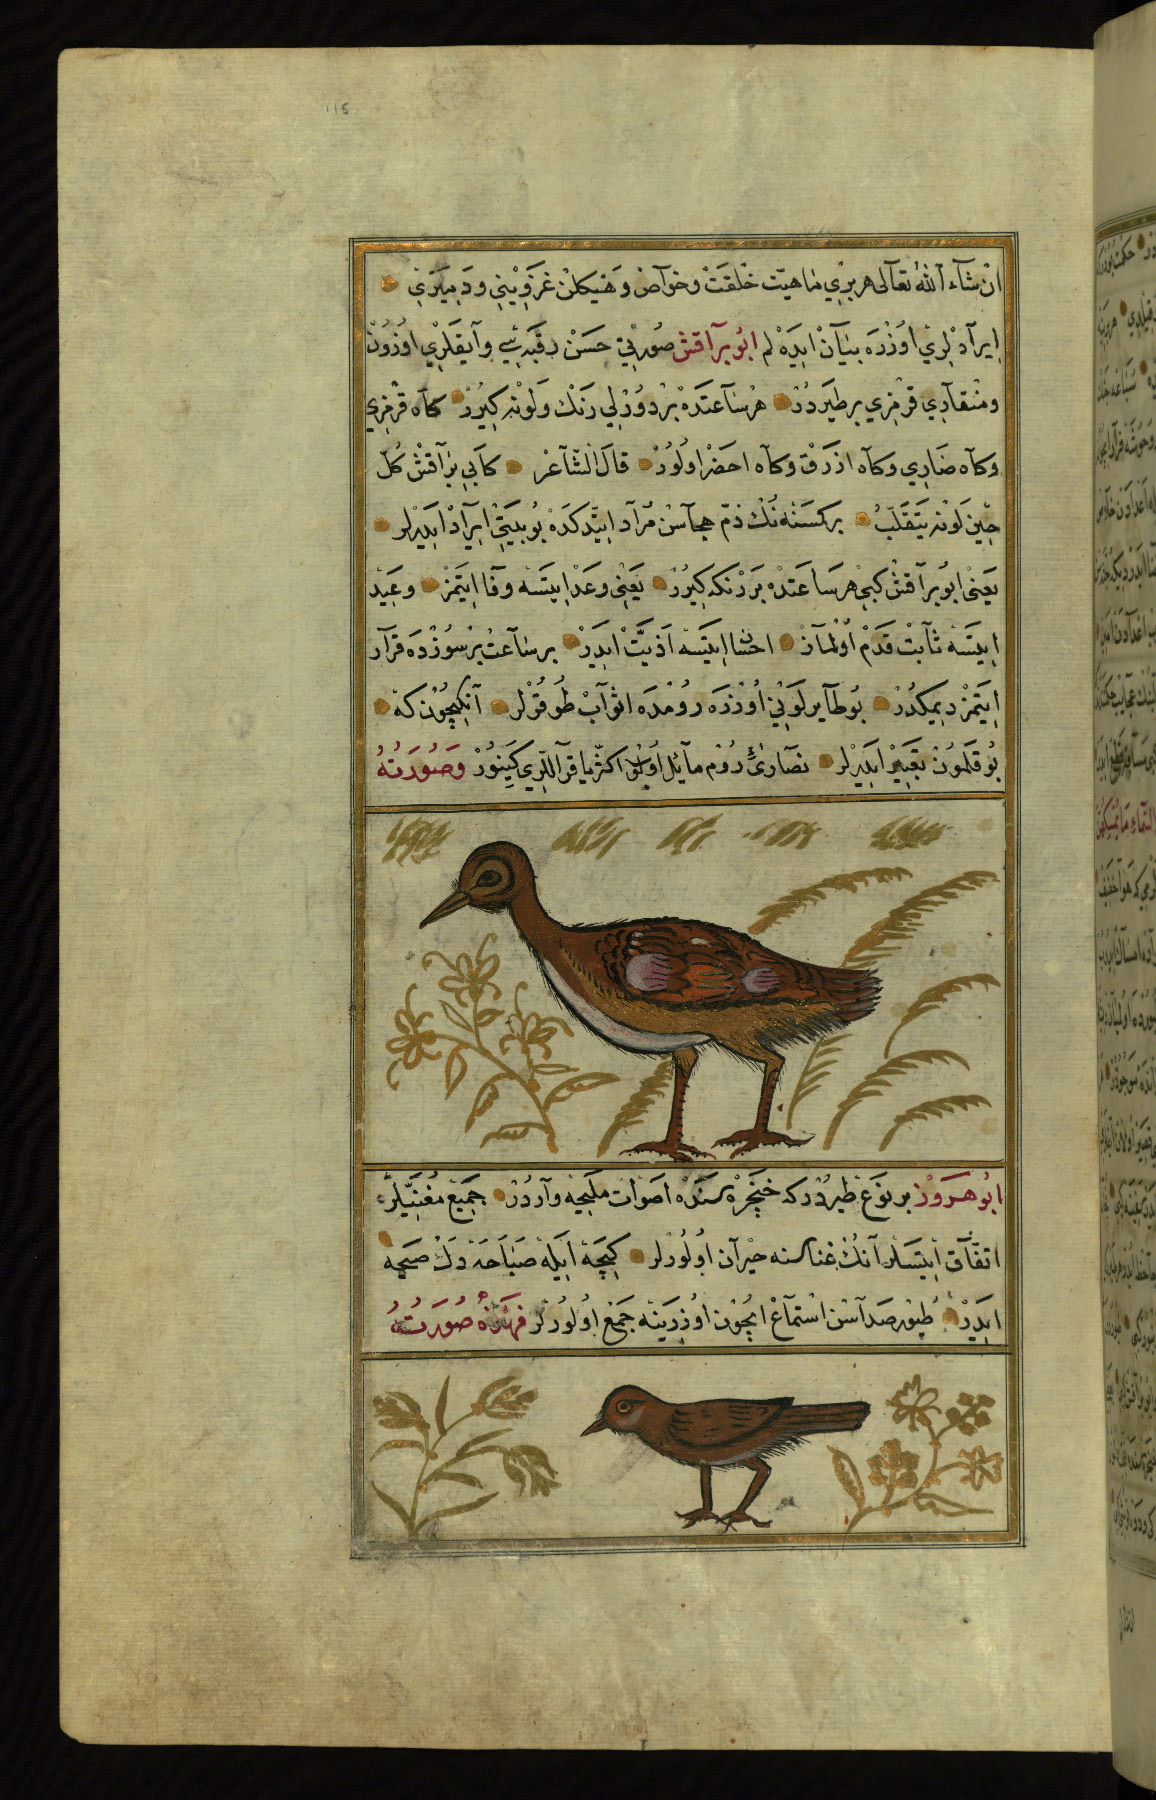 ان شآء الله تعآلى هر برى ماهيّت خلقت وخوآص وهيكلن غزوينى ودميرى
ايرآدلرى اوزره بيان ايده لم ابو برآقش صورتى حسن رقبه سى وآيقلرى اوزون
ومنقآرى قرمزى بر طيردر هر ساعتده بر دورلى رنك ولونه كيرر كآه قرمزى
وكآه صارى وكآه ازرق وكآه احضر اولور قال الشّآعر كابى برآقش كلّ
حين لونه يتقلّب بر كسنه نك ذمّ هجآسن مرآد ايتدكده بو بيتى ايرآد ايدرلر
يعنى ابو برآقش كبى هر ساعتده بر رنكه كيرر يعنى وعد ايتسه وفا ايتمز وعيد
ايتسه ثآبت قدم اولمآز احسان ايتسه اذيّت ايدر بر سآعت بر سوزده قرآر
ايتمز ديمكدر بو طآير لونى اوزره رومده اثوآب طوقورلر آنكچون كه
بو قلمون تعبير ايدرلر نصآرىء روم مآئل اولوب اكثريا قرآللرى كينور وصورته
ابو هرون بر نوع طيردر كه خنجره سنده اصوات مليحه وآردر جميع مغنّيلر
اتّفآق ايتسلر آنك غناسنه حيرآن اولورلر كيجه ايله صباحه دك صيحه
ايدر طيور صدآسن استمآع ايچون اوزرينه جمع اولورلر فهذه صورته